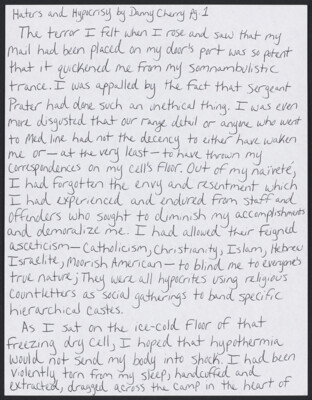 Haters and Hypocrisy by Danny Cherry Pg. 1
The terror I felt when I rose and saw that my
mail had been placed on my door's port was so potent
that it quickened me from my somnambulistic
trance. I was appalled by the fact that Sergeant
Prater had done such an unethical thing. I was even
more disgusted that our range detail or anyone who went
to Med line had not the decency to either have waken
me or—at the very least—to have thrown my
correspondences on my cell's floor. Out of my naïveté,
I had forgotten the envy and resentment which
I had experienced and endured from staff and
offenders who sought to diminish my accomplishments
and demoralize me. I had allowed their feigned
asceticism—Catholicism, Christianity, Islam, Hebrew
Israelite, Moorish American—to blind me to everyone's
true nature; They were all hypocrites using religious
countletters as social gatherings to band specific
hierarchical castes.
As I sat on the ice-cold floor of that
freezing dry cell, I hoped that hypothermia
would not send my body into shock. I had been
violently torn from my sleep, handcuffed and
extracted, dragged across the camp in the heart of